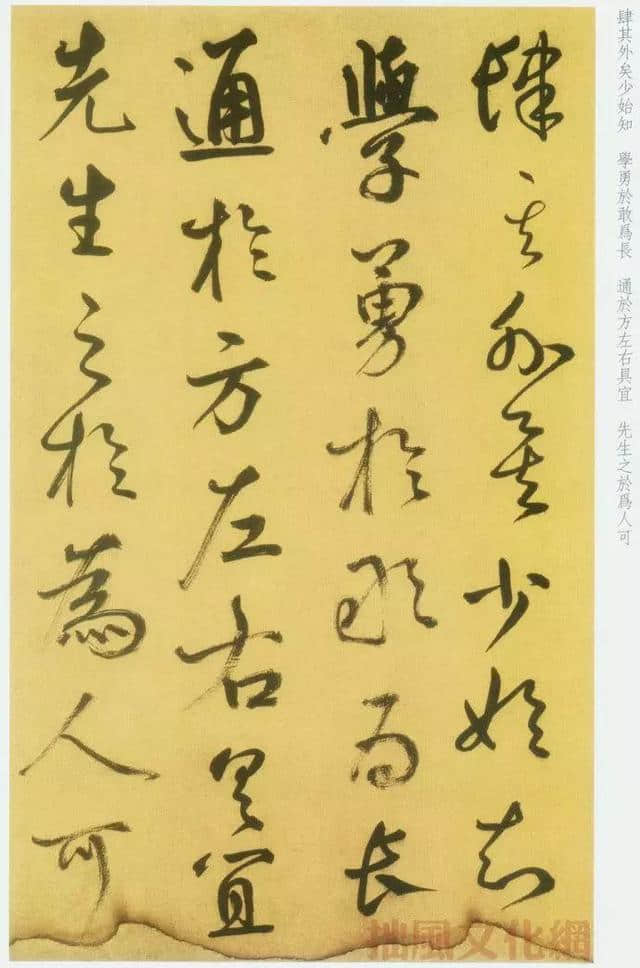 肆其外矣少始知　學勇於敢爲長　通於方左右具宜　先生之於爲人可
肆其外矣少始知
學勇於敢爲長
通於方左右具宜
先生之於爲人可
拙風文化網